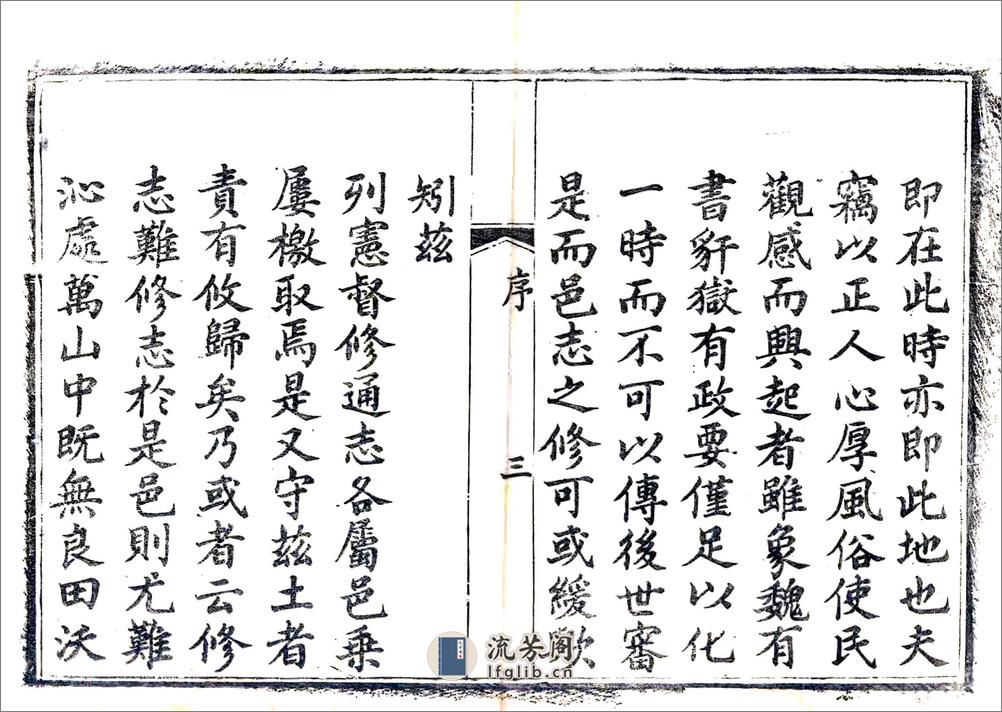 即在此時亦即此地也夫
竊以正人心厚風俗使民
觀感而興起者雖象魏有
書豻獄有政要僅足以化
一時而不可以傳後世審
是而邑志之修可或緩歟
序
三
矧茲
列憲督修通志各屬邑乗
屢檄取焉是又守茲土者
責有攸歸矣乃或者云修
志難修志於是邑則尤難
沁處萬山中既無良田沃
流芳阁
lfglib.cn